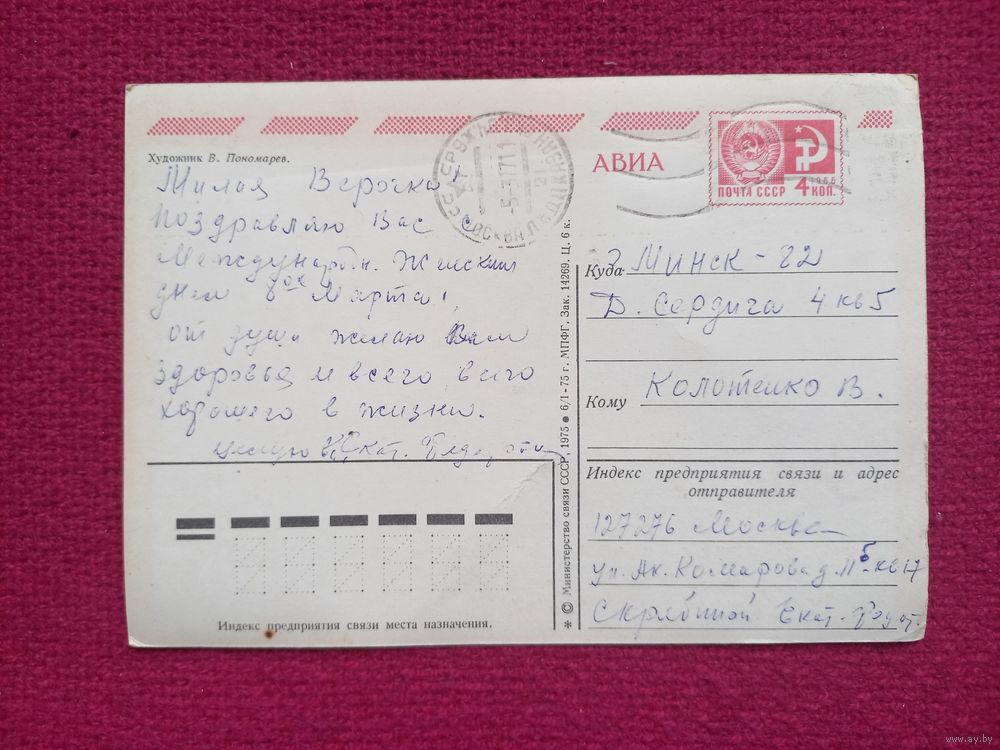 Художник В. Пономарев.
АВИА
1966
ПОЧТА СССР 4 КОП.
Милая Верочка!
Поздравляю Вас с
Международн. Женским
днем 8ое Марта!
от души желаю Вам
здоровья и всего, всего
хорошего в жизни.
целую Екат.
Куда г. Минск - 22
Д. Сердича 4 кв 5
Кому Колотенко В.
Индекс предприятия связи и адрес
отправителя
127276 Москва
ул. Ак. Комарова д. 11б кв 17
Скрябиной Екат.
Индекс предприятия связи места назначения.
* © Министерство связи СССР, 1975 ● 6/I-75 г. МПФГ. Зак. 14269. Ц. 6 к.
www.ay.by